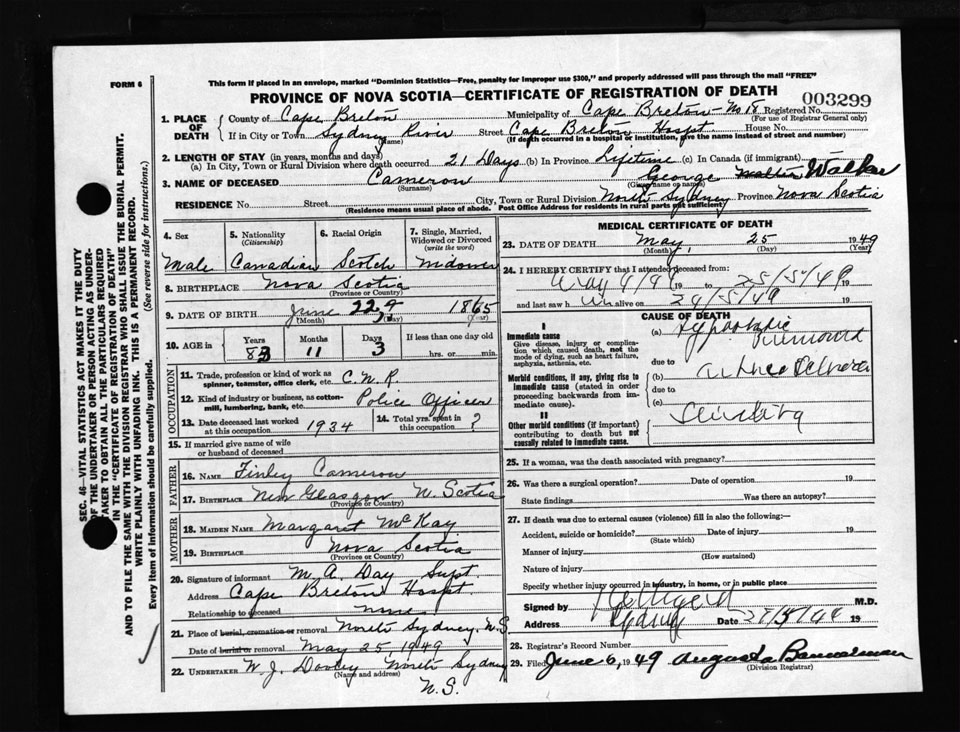 FORM 6
This form if placed in an envelope, marked "Dominion Statistics—Free, penalty for improper use $300," and properly addressed will pass through the mail "FREE"
PROVINCE OF NOVA SCOTIA—CERTIFICATE OF REGISTRATION OF DEATH
003299
1. PLACE OF DEATH
County of Cape Breton Municipality of Cape Breton - No 18 Registered No.
(For use of Registrar General only)
If in City or Town Sydney River Street Cape Breton Hospt. House No.
(Name) (If death occurred in a hospital or institution, give the name instead of street and number)
2. LENGTH OF STAY (in years, months and days)
(a) In City, Town or Rural Division where death occurred 21 Days (b) In Province Lifetime (c) In Canada (if immigrant)
3. NAME OF DECEASED Cameron George Walker
(Surname) (Given name or names)
RESIDENCE No. Street City, Town or Rural Division North Sydney Province Nova Scotia
(Residence means usual place of abode. Post Office Address for residents in rural parts not sufficient)
4. Sex 5. Nationality (Citizenship) 6. Racial Origin 7. Single, Married, Widowed or Divorced (write the word)
Male Canadian Scotch Widower
8. BIRTHPLACE Nova Scotia
(Province or Country)
9. DATE OF BIRTH June 22 1865
(Month) (Day) (Year)
10. AGE in Years Months Days If less than one day old
83 11 3 hrs. or min.
OCCUPATION
11. Trade, profession or kind of work as spinner, teamster, office clerk, etc. C.N.R.
12. Kind of industry or business, as cotton-mill, lumbering, bank, etc. Police Officer
13. Date deceased last worked at this occupation 1934 14. Total yrs. spent in this occupation ?
15. If married give name of wife or husband of deceased
FATHER
16. NAME Finley Cameron
17. BIRTHPLACE New Glasgow N. Scotia
(Province or Country)
MOTHER
18. MAIDEN NAME Margaret McKay
19. BIRTHPLACE Nova Scotia
(Province or Country)
20. Signature of informant M. A. Day Supt.
Address Cape Breton Hospt.
Relationship to deceased none
21. Place of burial, cremation or removal North Sydney, N.S
Date of burial or removal May 25, 1949
22. UNDERTAKER W. J. Dooley North Sydney
(Name and address)
N.S.
MEDICAL CERTIFICATE OF DEATH
23. DATE OF DEATH May, 25 1949
(Month) (Day)
24. I HEREBY CERTIFY that I attended deceased from:
19 to 25/5/49 19
and last saw h alive on 24/5/49 19
CAUSE OF DEATH
I
Immediate cause
Give disease, injury or complication which caused death, not the mode of dying, such as heart failure, asphyxia, asthenia, etc.
(a) Hypostatic
due to
Morbid conditions, if any, giving rise to immediate cause (stated in order proceeding backwards from immediate cause).
(b)
due to
(c)
II
Other morbid conditions (if important) contributing to death but not causally related to immediate cause.
25. If a woman, was the death associated with pregnancy?
26. Was there a surgical operation? Date of operation 19
State findings Was there an autopsy?
27. If death was due to external causes (violence) fill in also the following:
Accident, suicide or homicide? Date of injury 19
(State which)
Manner of injury
(How sustained)
Nature of injury
Specify whether injury occurred in industry, in home, or in public place
Signed by M.D.
Address Sydney Date 19
28. Registrar's Record Number
29. Filed June 6, 1949 Augusta Bannerman
(Division Registrar)
SEC. 46—VITAL STATISTICS ACT MAKES IT THE DUTY
OF THE UNDERTAKER OR PERSON ACTING AS UNDER-
TAKER TO OBTAIN ALL THE PARTICULARS REQUIRED
IN THE "CERTIFICATE OF REGISTRATION OF DEATH"
AND TO FILE THE SAME WITH THE DIVISION REGISTRAR WHO SHALL ISSUE THE BURIAL PERMIT.
WRITE PLAINLY WITH UNFADING INK. THIS IS A PERMANENT RECORD.
Every item of information should be carefully supplied. (See reverse side for instructions.)